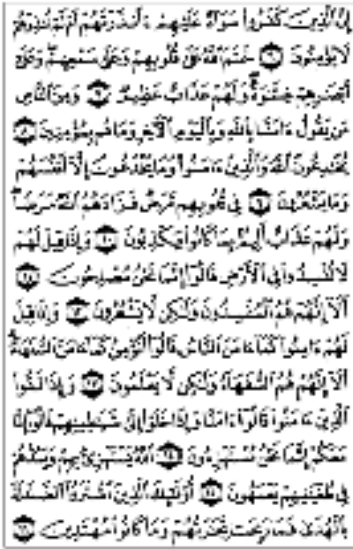 إِنَّ الَّذِينَ كَفَرُوا سَوَاءٌ عَلَيْهِمْ ءَأَنذَرْتَهُمْ أَمْ لَمْ تُنذِرْهُمْ
لَا يُؤْمِنُونَ ٦ خَتَمَ اللَّهُ عَلَىٰ قُلُوبِهِمْ وَعَلَىٰ سَمْعِهِمْ وَعَلَىٰ
أَبْصَارِهِمْ غِشَاوَةٌ وَلَهُمْ عَذَابٌ عَظِيمٌ ٧ وَمِنَ النَّاسِ
مَن يَقُولُ ءَامَنَّا بِاللَّهِ وَبِالْيَوْمِ الْآخِرِ وَمَا هُم بِمُؤْمِنِينَ ٨
يُخَادِعُونَ اللَّهَ وَالَّذِينَ ءَامَنُوا وَمَا يَخْدَعُونَ إِلَّا أَنفُسَهُمْ
وَمَا يَشْعُرُونَ ٩ فِي قُلُوبِهِم مَّرَضٌ فَزَادَهُمُ اللَّهُ مَرَضًا
وَلَهُمْ عَذَابٌ أَلِيمٌ بِمَا كَانُوا يَكْذِبُونَ ١٠ وَإِذَا قِيلَ لَهُمْ
لَا تُفْسِدُوا فِي الْأَرْضِ قَالُوا إِنَّمَا نَحْنُ مُصْلِحُونَ ١١
أَلَا إِنَّهُمْ هُمُ الْمُفْسِدُونَ وَلَٰكِن لَّا يَشْعُرُونَ ١٢ وَإِذَا قِيلَ
لَهُمْ ءَامِنُوا كَمَا ءَامَنَ النَّاسُ قَالُوا أَنُؤْمِنُ كَمَا ءَامَنَ السُّفَهَاءُ
أَلَا إِنَّهُمْ هُمُ السُّفَهَاءُ وَلَٰكِن لَّا يَعْلَمُونَ ١٣ وَإِذَا لَقُوا
الَّذِينَ ءَامَنُوا قَالُوا ءَامَنَّا وَإِذَا خَلَوْا إِلَىٰ شَيَاطِينِهِمْ قَالُوا إِنَّا
مَعَكُمْ إِنَّمَا نَحْنُ مُسْتَهْزِءُونَ ١٤ اللَّهُ يَسْتَهْزِئُ بِهِمْ وَيَمُدُّهُمْ
فِي طُغْيَانِهِمْ يَعْمَهُونَ ١٥ أُولَٰئِكَ الَّذِينَ اشْتَرَوُا الضَّلَالَةَ
بِالْهُدَىٰ فَمَا رَبِحَت تِّجَارَتُهُمْ وَمَا كَانُوا مُهْتَدِينَ ١٦